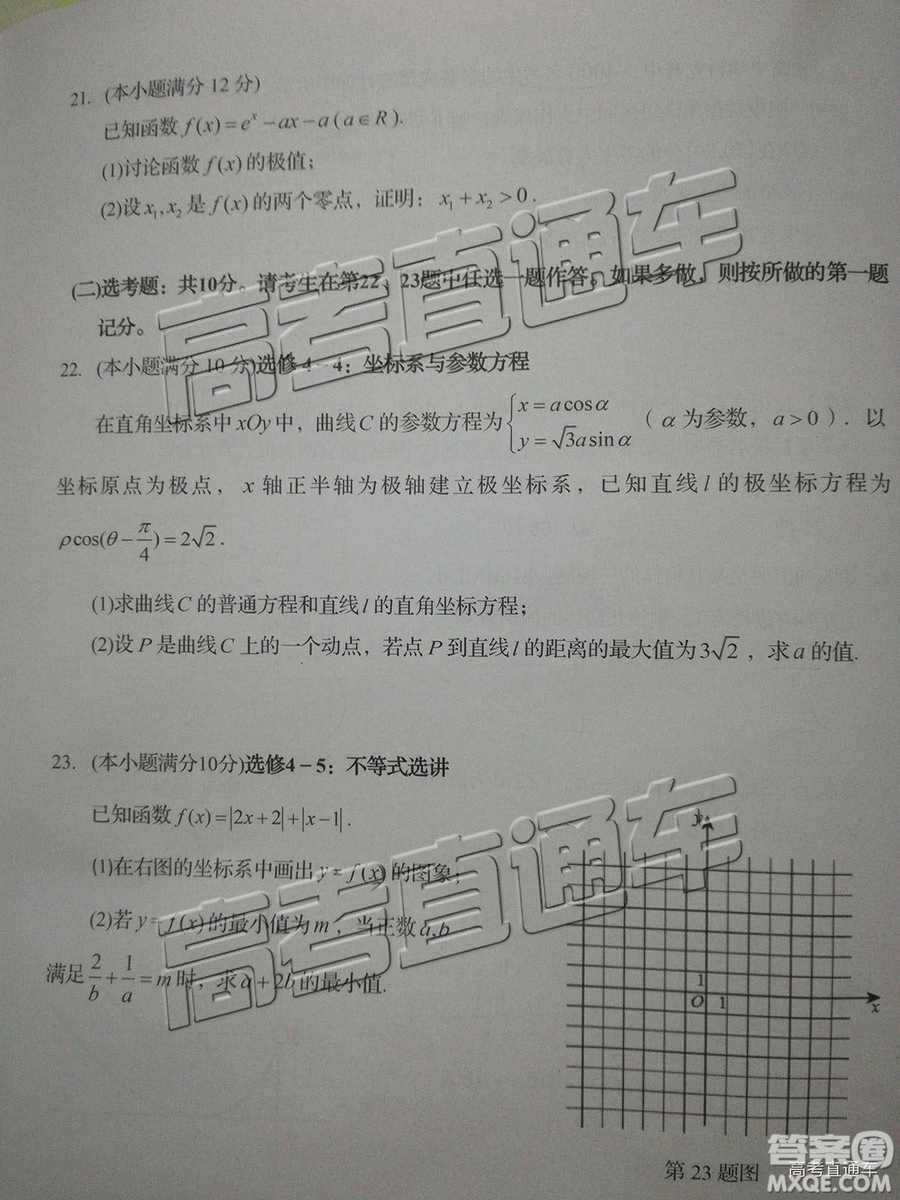 21. (本小题满分 12 分)
已知函数 f(x)=e^x−ax−a(a∈R).
(1)讨论函数 f(x) 的极值；
(2)设 x₁,x₂ 是 f(x) 的两个零点，证明：x₁+x₂>0.
(二)选考题：共10分。请考生在第22、23题中任选一题作答。如果多做，则按所做的第一题
记分。
22. (本小题满分 10 分)选修 4－4：坐标系与参数方程
在直角坐标系中 xOy 中，曲线 C 的参数方程为 { x=acosα y=√3asinα （ α 为参数，a>0 ）. 以
坐标原点为极点，x 轴正半轴为极轴建立极坐标系，已知直线 l 的极坐标方程为
ρcos(θ−π/4)=2√2.
(1)求曲线 C 的普通方程和直线 l 的直角坐标方程；
(2)设 P 是曲线 C 上的一个动点，若点 P 到直线 l 的距离的最大值为 3√2，求 a 的值.
23. (本小题满分10分)选修4－5：不等式选讲
已知函数 f(x)=|2x+2|+|x−1|.
(1)在右图的坐标系中画出 y=f(x) 的图象；
(2)若 y=f(x) 的最小值为 m，当正数 a,b
满足 2/b+1/a=m 时，求 a+2b 的最小值.
y
1
O 1
x
第 23 题图
高考直通车
高考直通车
答案圈
高考直通车
MXQE.COM